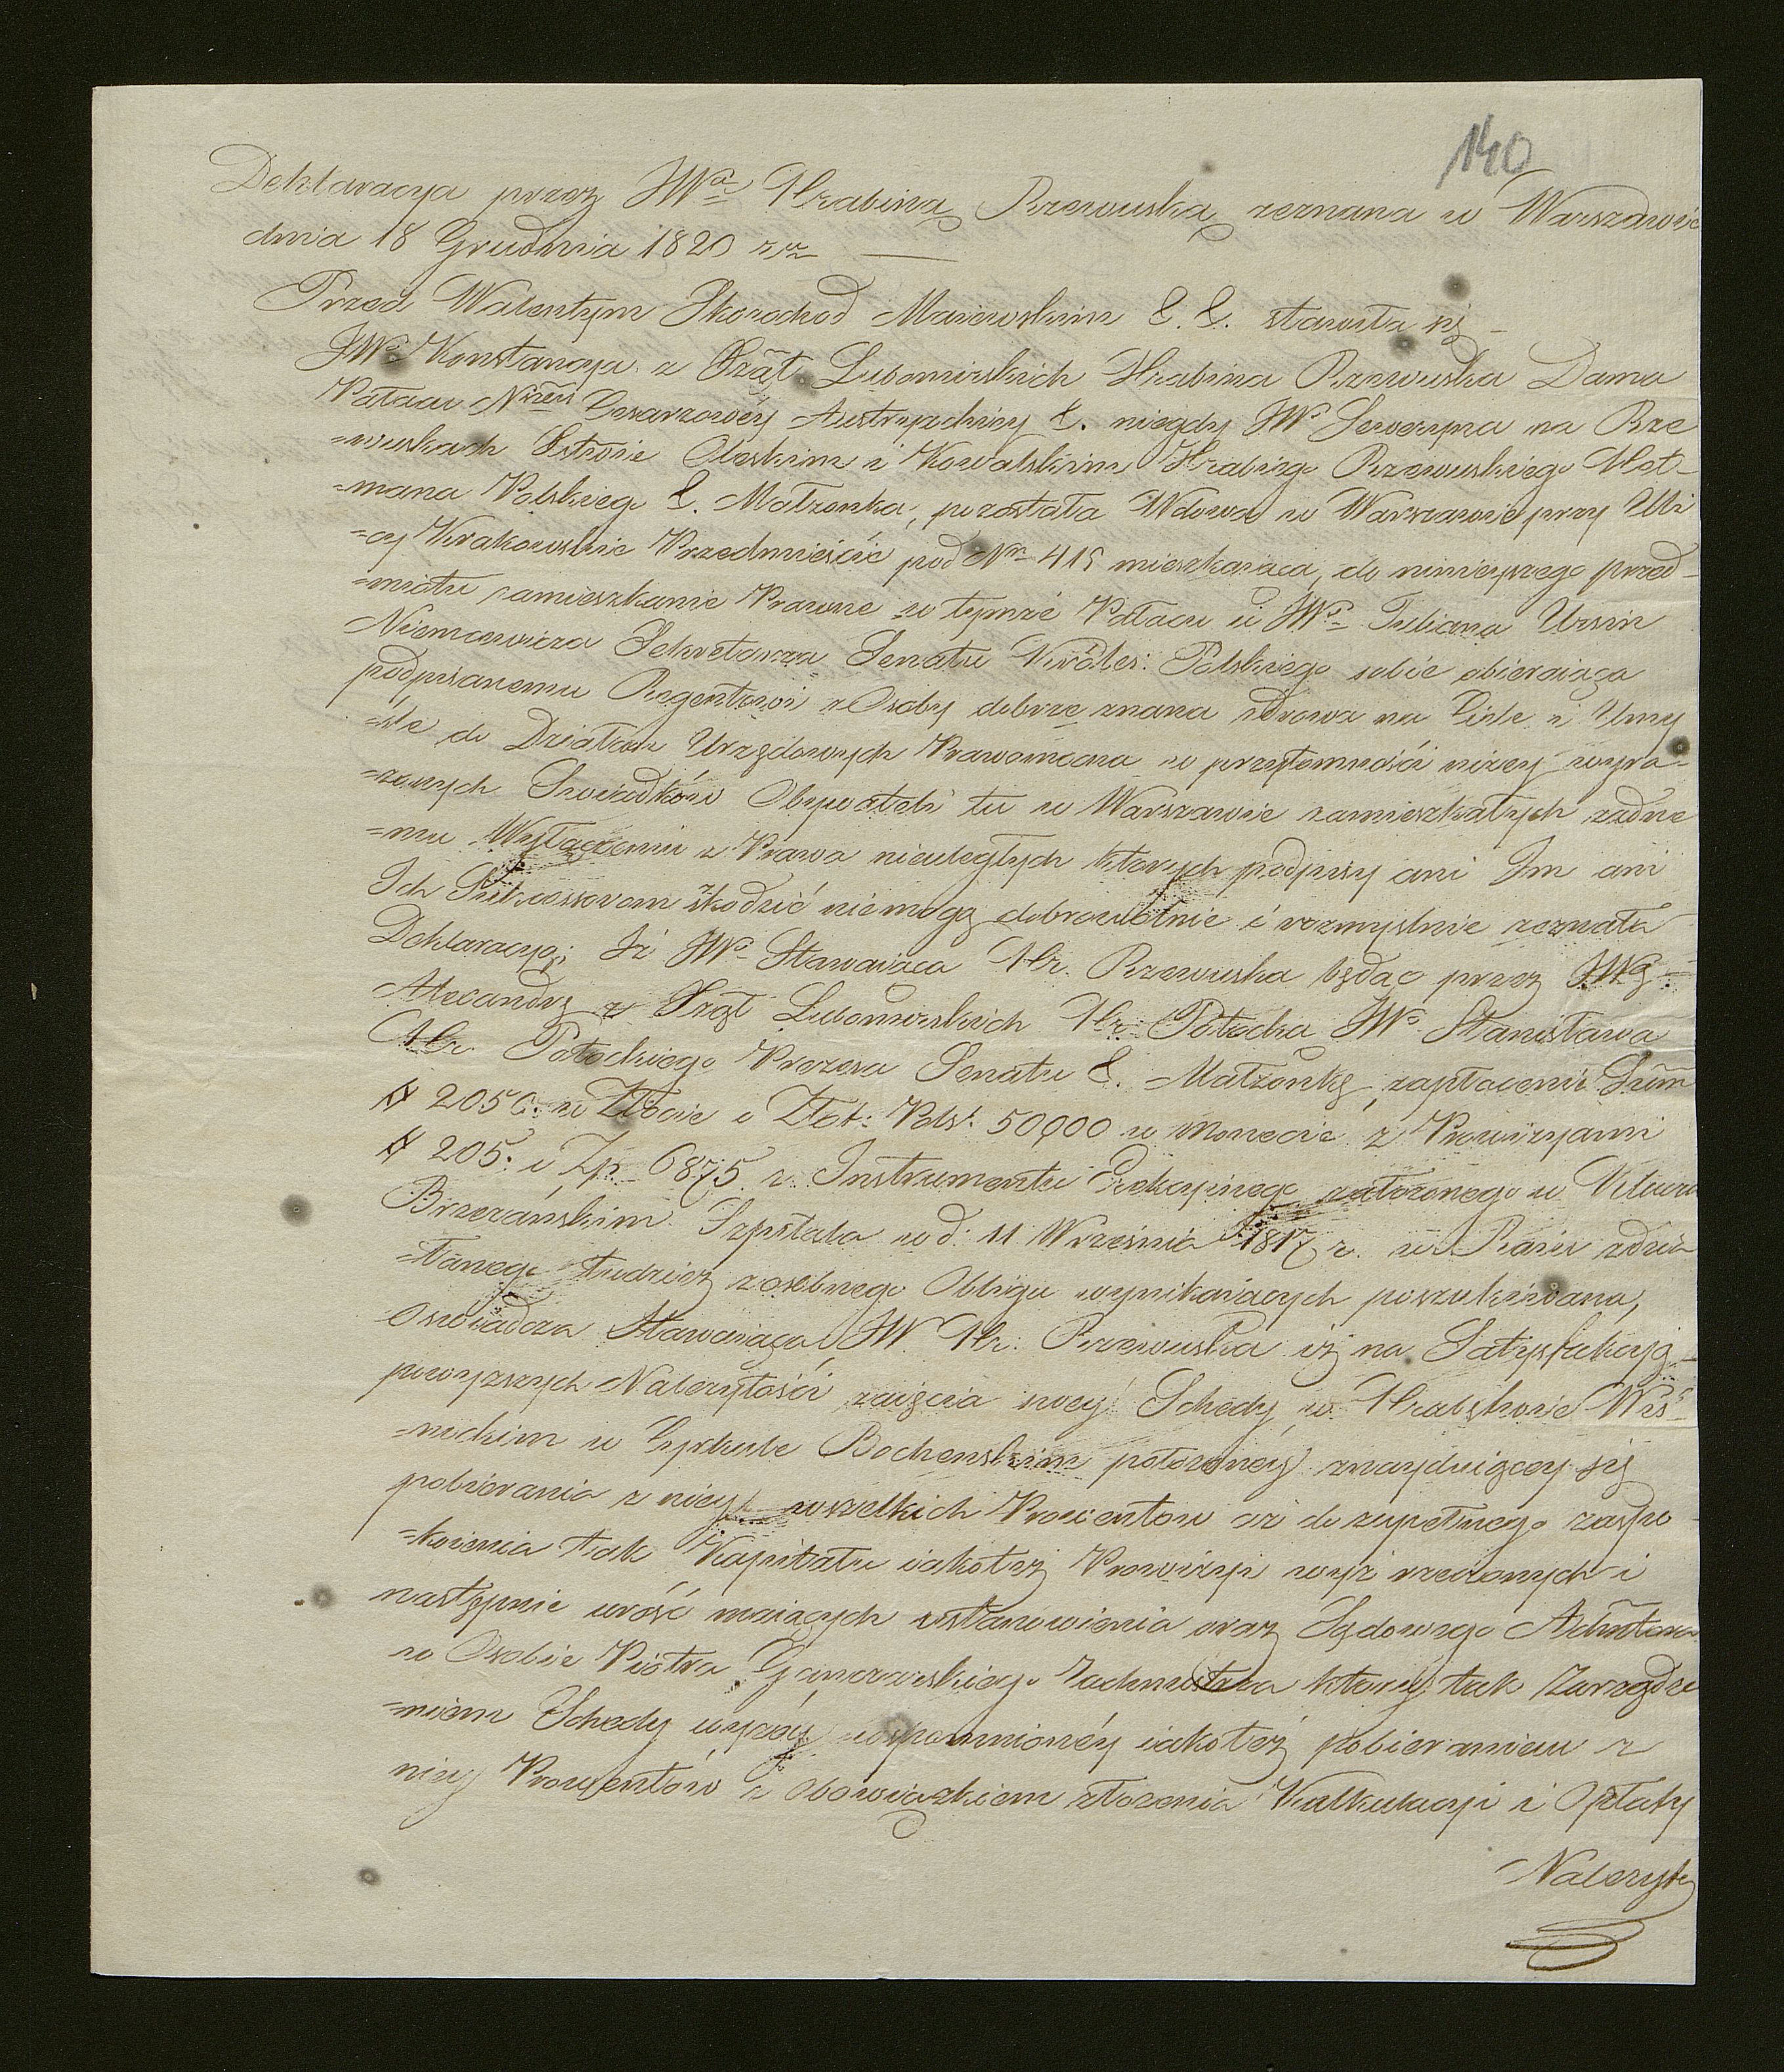 140
Deklaracya przez JWą Hrabinę Rzewuską zeznana w Warszawie
dnia 18 Grudnia 1820 r.
Przed Walentym Skorochod Maiewskim &. &. stawiła się
JWa Konstancya z Xżąt Lubomirskich Hrabina Rzewuska Dama
Pałacu Cesarzowéy Austryackiey &. niegdy JWo Seweryna na Rze
=wuskach Ostroie Oleskim i Kowalskim Hrabiego Rzewuskiego Het-
=mana Polskiego &. Małżonka, pozostała Wdowa w Warszawie przy Uli
=cy Krakowskie Przedmieście pod Nr 415 mieszkaiąca, do ninieyszego przed-
=miotu zamieszkanie Prawne w tymże Pałacu u JWo Juliana Ursin
Niemcewicza Sekretarza Senatu Króles: Polskiego sobie obieraiąca
podpisanemu Regentowi z Osoby dobrze znana zdrowa na Ciele i Umy
=śle do Działań Urzędowych Prawomocna w przytomności niżey wyra-
=żonych Świadków Obywateli tu w Warszawie zamieszkałych żadne
=mu Wyłączeniu z Prawa nieuległych których podpisy ani Im ani
Ich Sukcessorom szkodzić niemogą dobrowolnie i rozmyślnie zeznała
Deklaracyą; Iż JWa Stawaiąca Hr. Rzewuska będąc przez JWę
Alexandrę z Xżąt Lubomirskich Hr: Potocką JWo Stanisława
Hr. Potockiego Prezesa Senatu &. Małżonkę, zapłacenie Summ
# 2050. w Złocie i Złot: Pols: 50,000 w Monecie z Prowizyami
# 205. i Zp. 6875. z Instrumentu założonego w
Brzezańskim Szpitala w d: 11 Września 1817 r. w zdzia
=łanego tudzież z osobnego Obligu wynikaiących poszukiwana,
Oświadcza Stawaiąca JW. Hr: Rzewuska iż na Satysfakcyą
powyższych Należytości zaięcia swey Schedy w Hrabstwie Wiś-
=nickim w Cyrkule Bochenskim położonéy znayduiącey się
pobierania z niey wszelkich Prowentow aż do zupełnego zaspo
=koienia tak Kapitału iakoteż Prowizyi wyż rzeczonych i
następnie urość maiących ustanowienia oraz Sądowego Admstora
w Osobie Piotra który tak Zarządze
=niem Schedy wyżéy wspomnionéy iakoteż pobieraniem z
niey Prowentów z obowiązkiem złożenia Kalkulacyi i Opłaty
Należyto